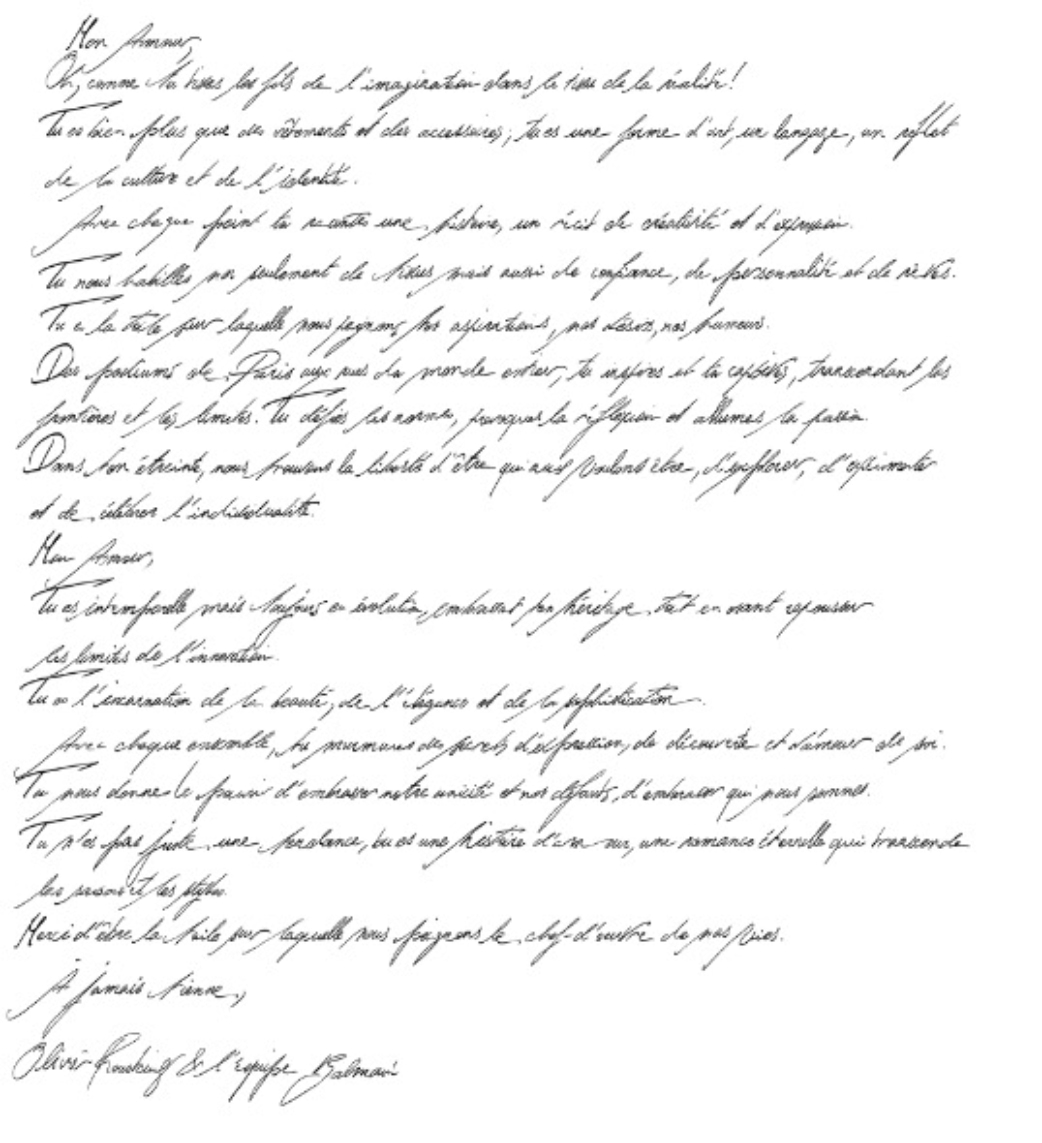 Mon Amour,
Oh, comme tu tisses les fils de l'imagination dans le tissu de la réalité!
Tu es bien plus que des vêtements et des accessoires; tu es une forme d'art, un langage, un reflet
de la culture et de l'identité.
Avec chaque point tu racontes une histoire, un récit de créativité et d'expression.
Tu nous habilles non seulement de tissus mais aussi de confiance, de personnalité et de rêves.
Tu es la toile sur laquelle nous peignons nos aspirations, nos désirs, nos humeurs.
Des podiums de Paris aux rues du monde entier, tu inspires et tu captives, transcendant les
frontières et les limites. Tu défies les normes, provoques la réflexion et allumes la passion.
Dans ton étreinte, nous trouvons la liberté d'être qui nous voulons être, d'explorer, d'expérimenter
et de célébrer l'individualité.
Mon Amour,
Tu es intemporelle mais toujours en évolution, embrassant ton héritage tout en osant repousser
les limites de l'innovation.
Tu es l'incarnation de la beauté, de l'élégance et de la sophistication.
Avec chaque ensemble, tu murmures des secrets d'expression, de découverte et d'amour de soi.
Tu nous donnes le pouvoir d'embrasser notre unicité et nos défauts, d'embrasser qui nous sommes.
Tu n'es pas juste une tendance, tu es une histoire d'amour, une romance éternelle qui transcende
les saisons et les styles.
Merci d'être la toile sur laquelle nous peignons le chef-d'œuvre de nos vies.
A jamais tienne,
Olivier Rousteing & l'équipe Balmain